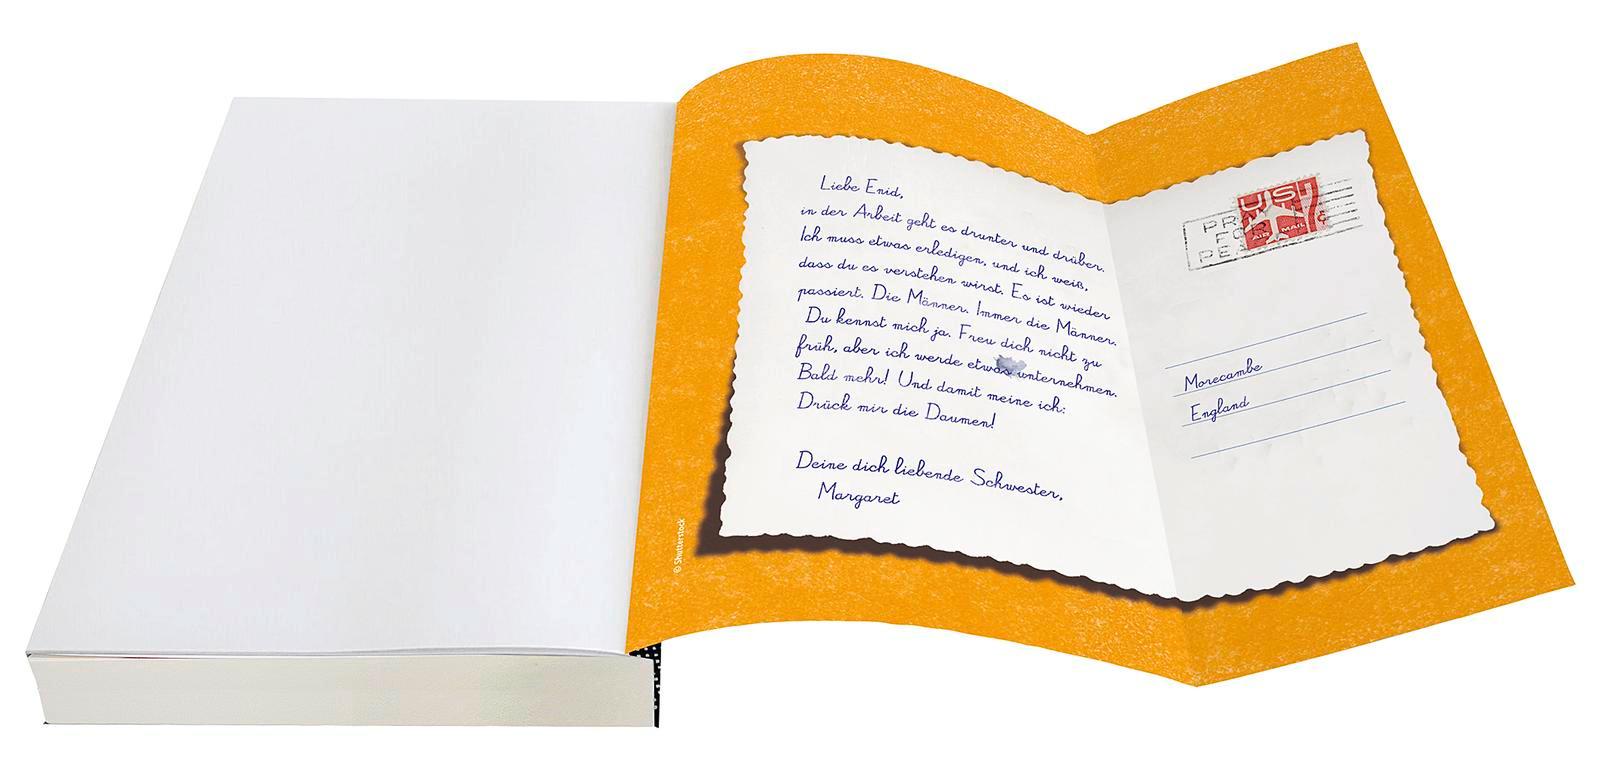 Liebe Enid,
in der Arbeit geht es drunter und drüber.
Ich muss etwas erledigen, und ich weiß,
dass du es verstehen wirst. Es ist wieder
passiert. Die Männer. Immer die Männer.
Du kennst mich ja. Freu dich nicht zu
früh, aber ich werde etwas unternehmen.
Bald mehr! Und damit meine ich:
Drück mir die Daumen!
Deine dich liebende Schwester,
Margaret
© Shutterstock
US 7¢
AIR MAIL
PRAY
FOR
PEACE
Morecambe
England